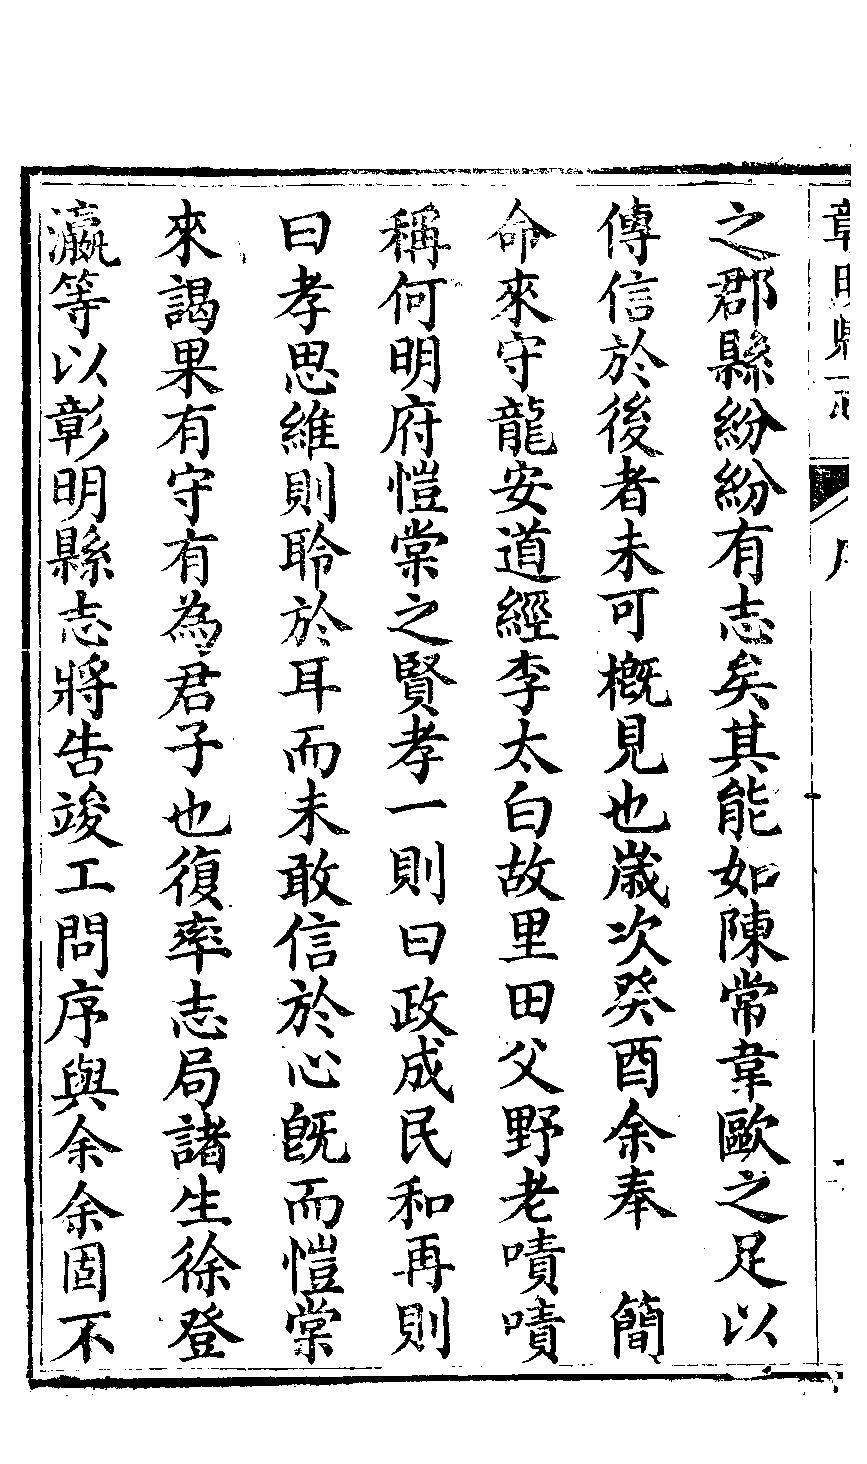 彰明縣志
序
之郡縣紛紛有志矣其能如陳常韋歐之足以
傳信於後者未可概見也歲次癸酉余奉　簡
命來守龍安道經李太白故里田父野老嘖嘖
稱何明府愷棠之賢孝一則曰政成民和再則
曰孝思維則聆於耳而未敢信於心旣而愷棠
來謁果有守有為君子也復率志局諸生徐登
瀛等以彰明縣志將告竣工問序與余余固不